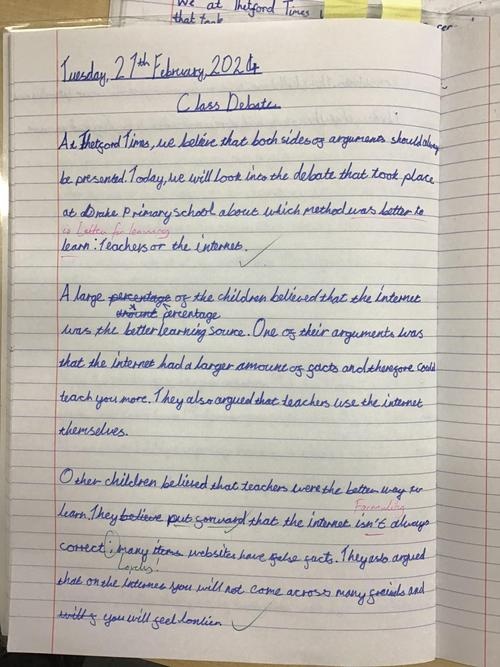 We at Thetford Times
that took
Tuesday, 27th February, 2024
Class Debate
At Thetford Times, we believe that both sides of arguments should always
be presented. Today, we will look into the debate that took place
at Drake Primary school about which method was better to
is better for learning
learn: Teachers or the internet.
A large percentage of the children believed that the internet
amount percentage
was the better learning source. One of their arguments was
that the internet had a larger amount of facts and therefore could
teach you more. They also argued that teachers use the internet
themselves.
Other children believed that teachers were the better way to
Formality
learn. They believe put forward that the internet isn't always
correct; many items websites have false facts. They also argued
Lovely!
that on the internet you will not come across many freinds and
will f you will feel lonlier.